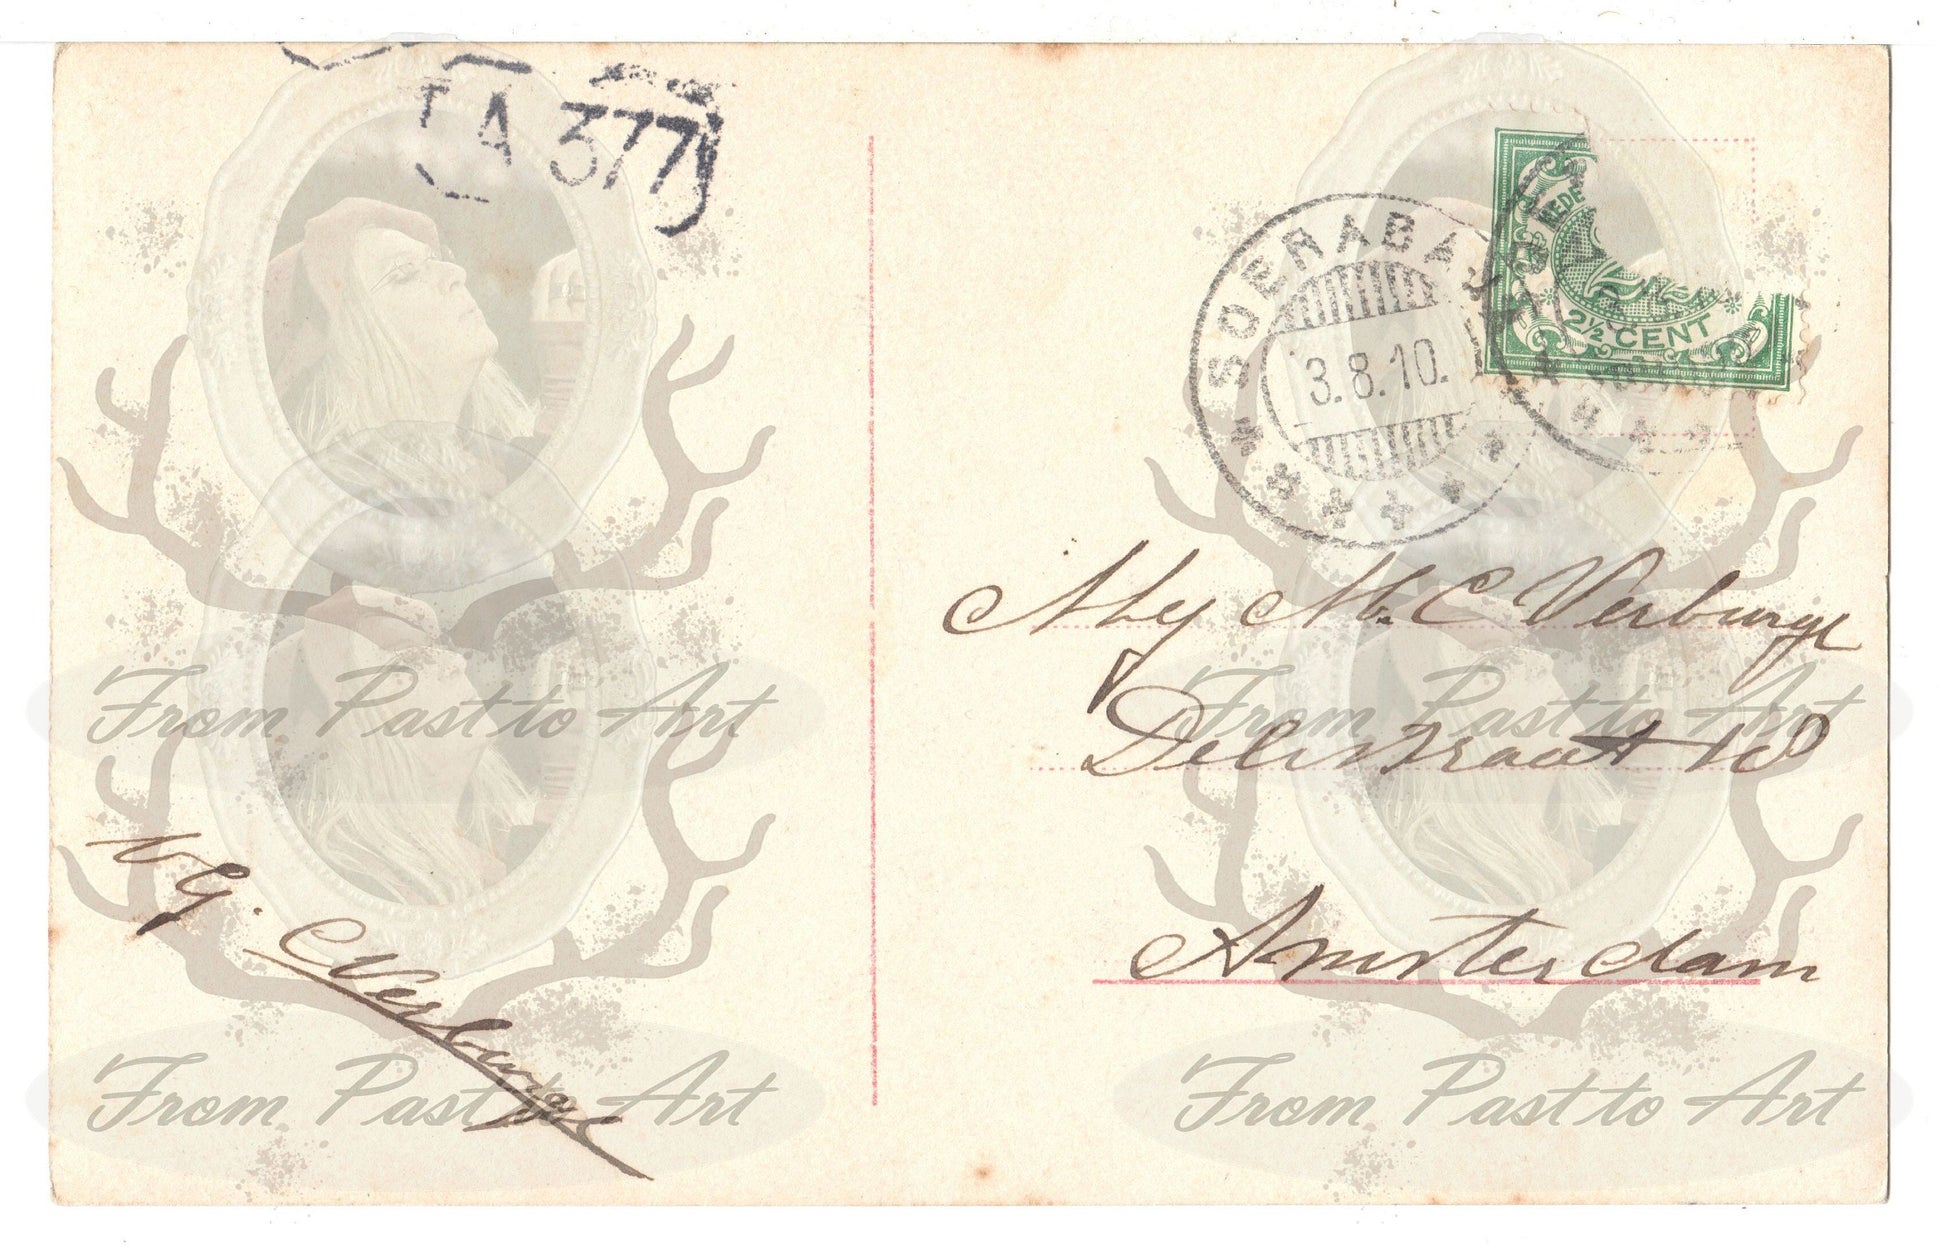 TA 377
SOERABA
3.8.10.
NEDE
2½ CENT
Mej M. C. Verburge
Delistraat 10
Amsterdam
v G.
C Verburge
From Past to Art
From Past to Art
From Past to Art
From Past to Art